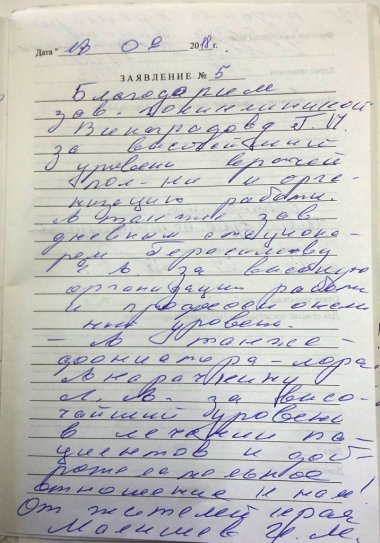 Дата " 17 " 02 2018 г.
ЗАЯВЛЕНИЕ № 5
Благодарим
зав. поликлиникой
Виноградову Г. И.
за высочайший
уровень врачей
пол-ки и орга-
низацию работы.
А также зав.
дневным стациона-
ром Герасимову
за высокую
организацию работы
и профессиональ-
ный уровень.
- А также
доктора - лора
Л. М. за высо-
чайший уровень
в лечении па-
циентов и доб-
рожелательное
отношение к нам!
От жителей края